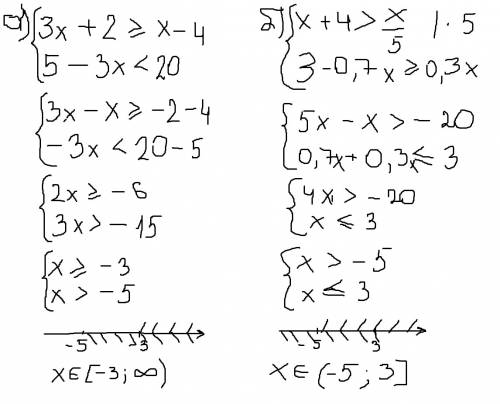 а) { 3x + 2 ≥ x - 4
5 - 3x < 20
{ 3x - x ≥ -2 - 4
-3x < 20 - 5
{ 2x ≥ -6
3x > -15
{ x ≥ -3
x > -5
-5 -3
x ∈ [-3; ∞)
б) { x + 4 > x/5 | · 5
3 - 0,7x ≥ 0,3x
{ 5x - x > -20
0,7x + 0,3x ≤ 3
{ 4x > -20
x ≤ 3
{ x > -5
x ≤ 3
-5 3
x ∈ (-5; 3]